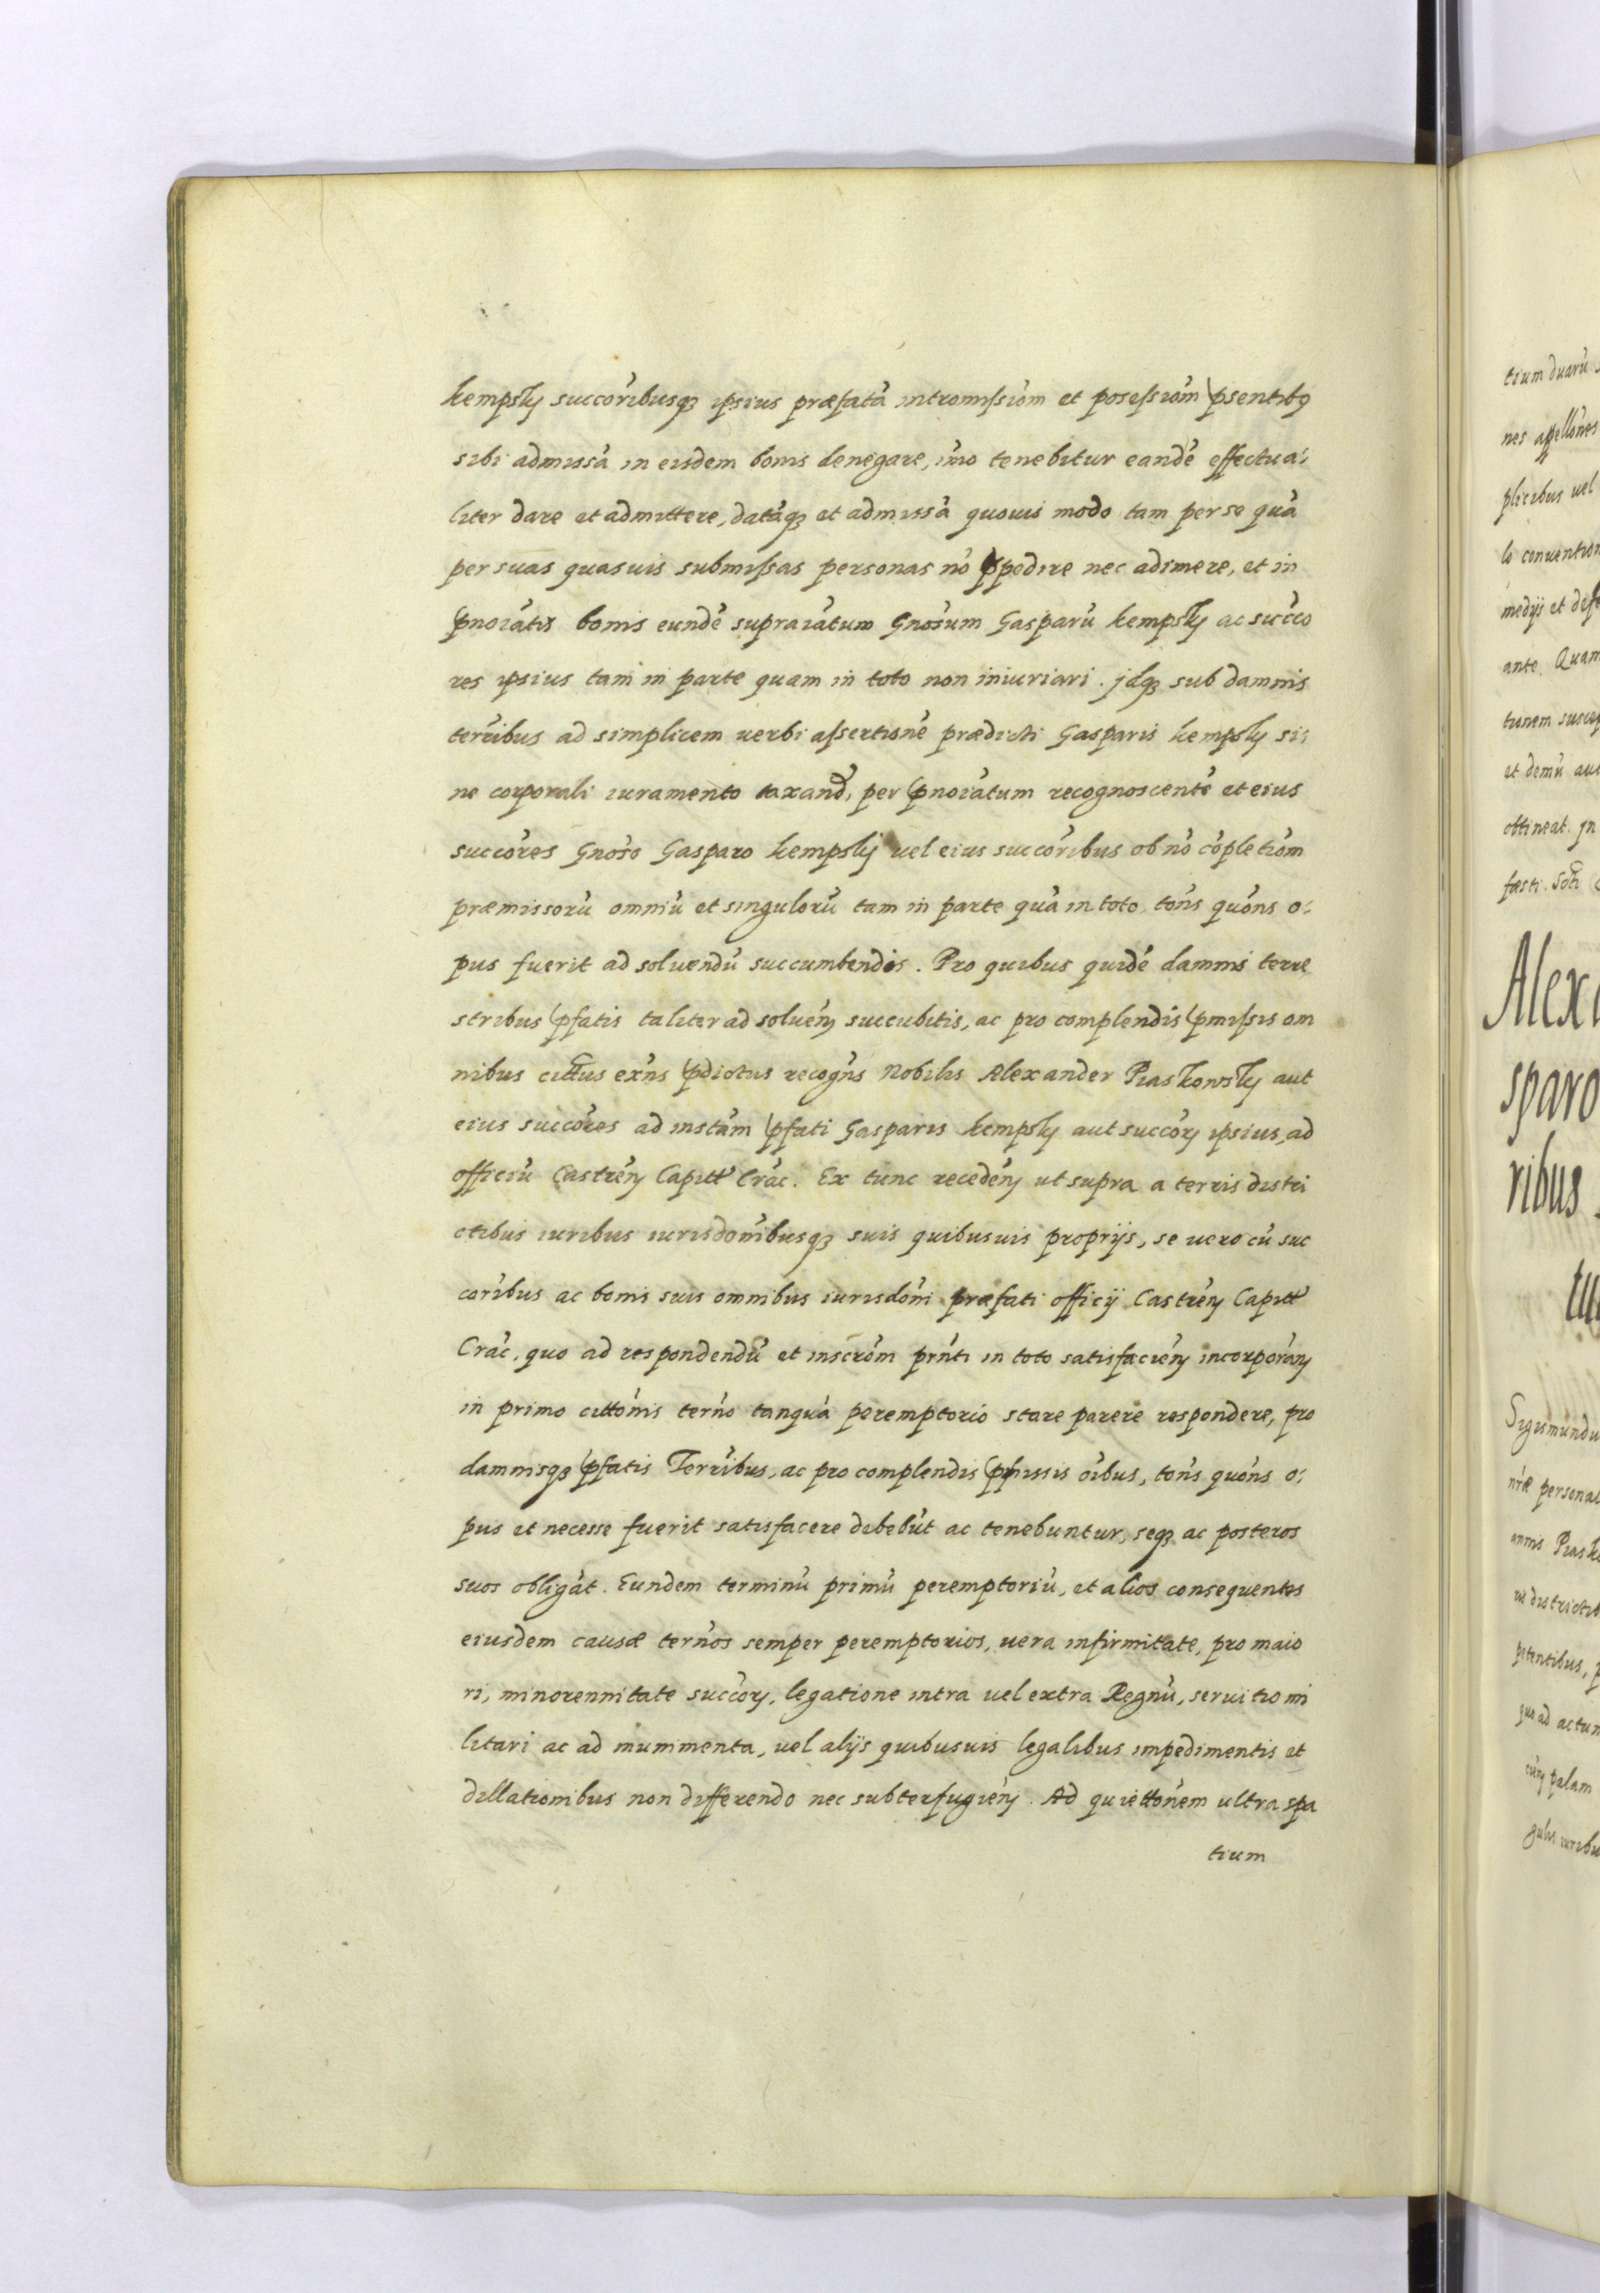 kempsky succoribusq3 ipsius præfatã intromissiom et posessiom psentibus
sibi admissã in eisdem bonis denegare, imo tenebitur eandẽ effectua:
liter dare et admittere, datãq3 et admissã quouis modo tam per se quã
per suas quasuis submissas personas nõ pedire nec adimere, et in
pnoiatis bonis eundẽ supraiatum Gnosum Gasparũ kempsky ac succo
res ipsius tam in parte quam in toto non iniuriari. jdq3 sub damnis
terribus ad simplicem uerbi assertionẽ prædicti Gasparis kempsky si:
ne corporali iuramento taxand, per pnoiatum recognoscentẽ et eius
succores Gnoso Gasparo kempsky uel eius succoribus ob nõ cõpletiom
præmissorũ omniũ et singulorũ tam in parte quã in toto tons quons o:
pus fuerit ad soluendũ succumbendis. Pro quibus quidẽ damnis terre
stribus pfatis taliter ad soluen succubitis, ac pro complendis pmissis om
nibus cittus exns pdictus recogns Nobilis Alexander Piaskowsky aut
eius succores ad instam pfati Gasparis kempsky aut succor ipsius, ad
officiũ Castren Capitt Crac. Ex tunc receden ut supra a terris distri
ctibus iuribus iurisdonibusq3 suis quibusuis proprijs, se uero cũ suc
coribus ac bonis suis omnibus iurisdoni præfati officij Castren Capitt
Crac, quo ad respondendũ et inscrom prnti in toto satisfacien incorporan
in primo cittonis terno tanquã peremptorio stare parere respondere, pro
damnisq3 pfatis Terribus, ac pro complendis pmissis oibus, tons quons o:
pus et necesse fuerit satisfacere debebũt ac tenebuntur, seq3 ac posteros
suos obligãt. Eundem terminũ primũ peremptoriũ, et alios consequentes
eiusdem causæ ternos semper peremptorios, uera infirmitate, pro maio
ri, minorennitate succor, legatione intra uel extra Regnũ, seruitio mi
litari ac ad munimenta, uel alijs quibusuis legalibus impedimentis et
dillationibus non differendo nec subterfugien. Ad quiettonem ultra spa
tium
tium duarũ
nes appellones
plicibus uel
lo conuention
medijs et defe
ante. Quam
et demũ
obtineat. Jn
fæsti.
Alex
sparo
ribus
Sigismundu
nræ personal
annis Piask
petentibus,
quo ad actum
palam